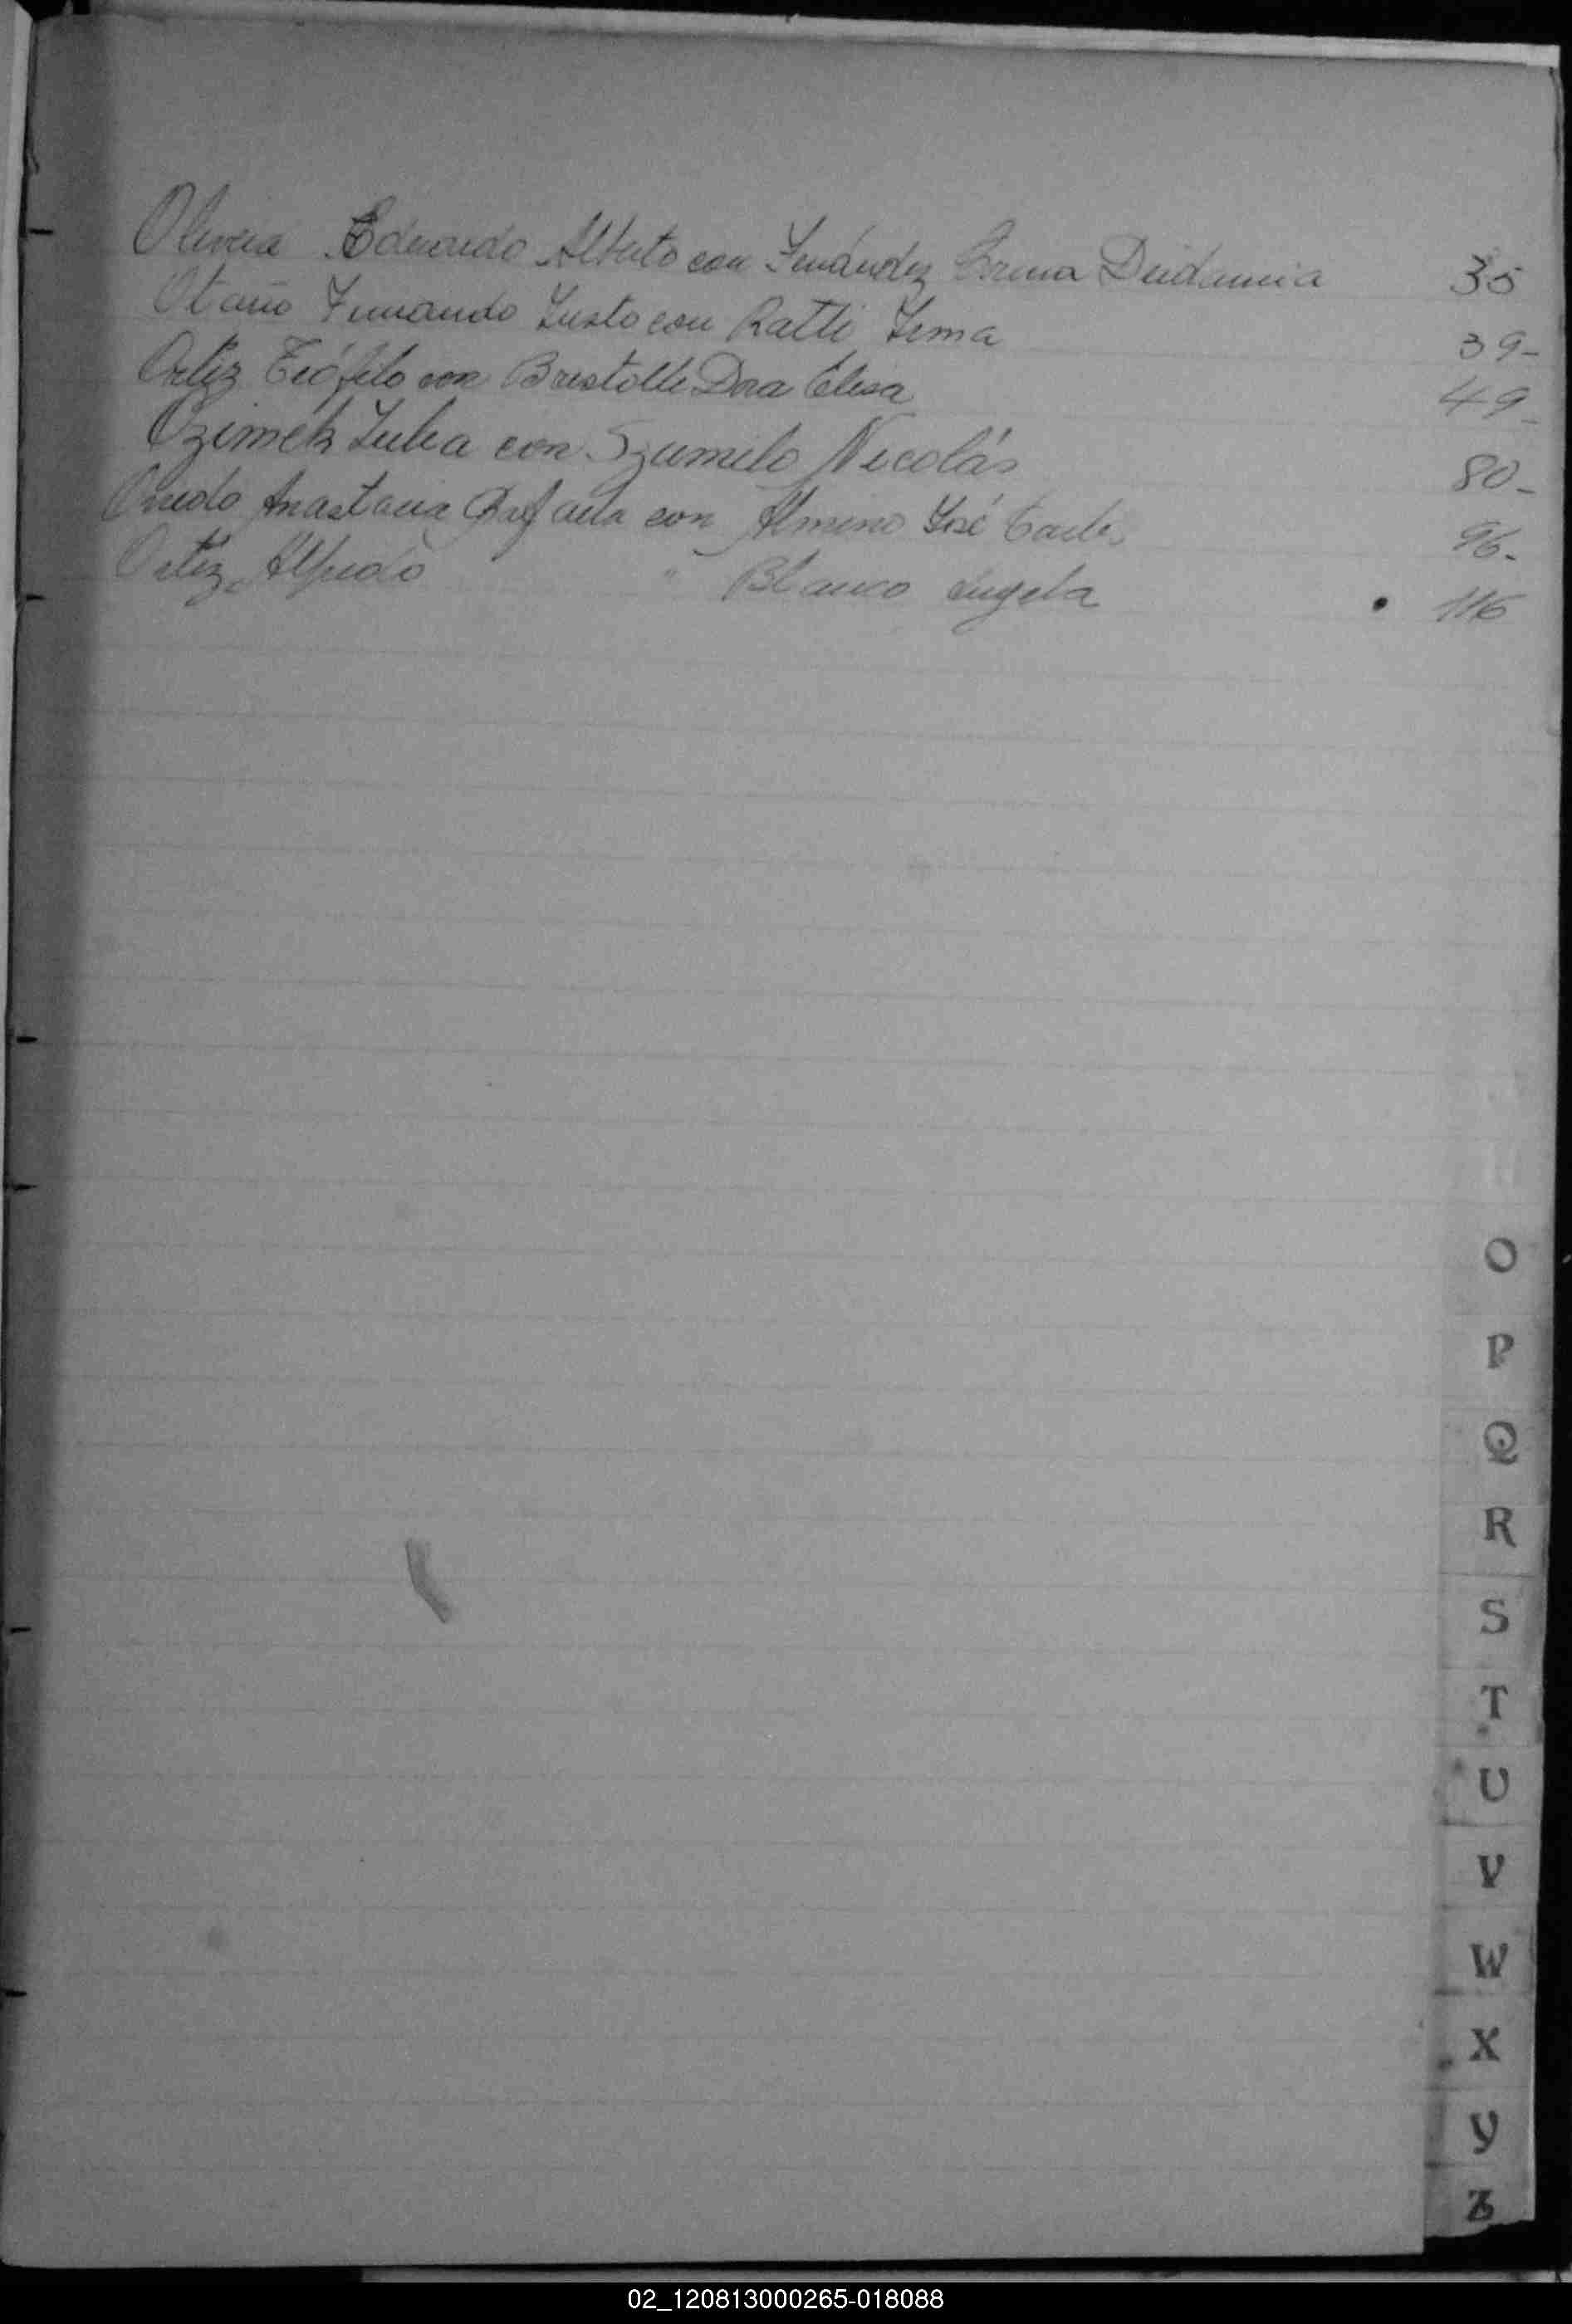 Olivera Eduardo Alberto con Fernández Emma Deidamia 35
Otaño Fernando Justo con Ratti Irma 39-
Ortiz Teófilo con Dora Elisa 49-
Ozimek Julia con Szumilo Nicolás 80-
Oviedo Anastacia Rafaela con José Carlos 96-
Ortiz, Alfredo " Blanco Angela 116
O
P
Q
R
S
T
U
V
W
X
Y
Z
02_120813000265-018088